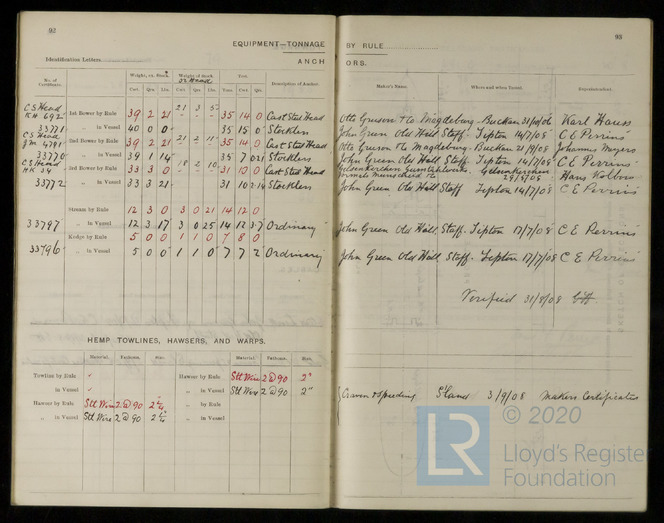 92
EQUIPMENT—TONNAGE
Identification Letters
ANCH
No. of Certificate.
Weight, ex. Stock.
Weight of Stock or Head
Test.
Description of Anchor.
Cwt. Qrs. Lbs.
Cwt. Qrs. Lbs.
Tons. Cwt. Qrs.
C S Head
KH 692
1st Bower by Rule 39 2 21 21 3 5 35 14 0 Cast Steel Head
33771 „ in Vessel 40 0 0 35 15 0 Stockless
C S Head
JM 4791
2nd Bower by Rule 39 2 21 21 2 11 35 14 0 Cast Steel Head
33770 „ in Vessel 39 1 14 35 7 0 21 Stockless
C S Head
HK 34
3rd Bower by Rule 33 3 0 18 2 10 31 10 0 Cast Steel Head
33772 „ in Vessel 33 3 21 31 10 2 14 Stockless
Stream by Rule 12 3 0 3 0 21 14 12 0
33797 „ in Vessel 12 3 17 3 0 25 14 12 3 7 Ordinary
Kedge by Rule 5 0 0 1 1 0 7 8 0
33796 „ in Vessel 5 0 0 1 1 0 7 7 2 Ordinary
HEMP TOWLINES, HAWSERS, AND WARPS.
Material. Fathoms. Size.
Material. Fathoms. Size.
Towline by Rule
Hawser by Rule Stl Wire 2 @ 90 2"
„ in Vessel
„ in Vessel Stl Wire 2 @ 90 2"
Hawser by Rule Stl Wire 2 @ 90 2¼
„ by Rule
„ in Vessel Stl Wire 2 @ 90 2¼
„ in Vessel
93
BY RULE
ORS.
Maker's Name.
Where and when Tested.
Superintendent.
Otto Gruson & Co Magdeburg - Buckau 31/10/06 Karl Hauss
John Green Old Hall Staff. Tipton 14/7/08 C E Perrins
Otto Gruson & Co Magdeburg. Buckau 21/9/08 Johannes Meyers
John Green Old Hall Staff. Tipton 14/7/08 C E Perrins
Gelsenkirchen Gusstahlwerke, Gelsenkirchen
Hans Kolbow
John Green Old Hall Staff Tipton 14/7/08 C E Perrins
John Green Old Hall Staff. Tipton 17/7/08 C E Perrins
John Green Old Hall Staff. Tipton 17/7/08 C E Perrins
Verified 31/8/08
Craven & Speeding S'land 3/9/08 Makers Certificates
© 2020
LR
Lloyd's Register
Foundation